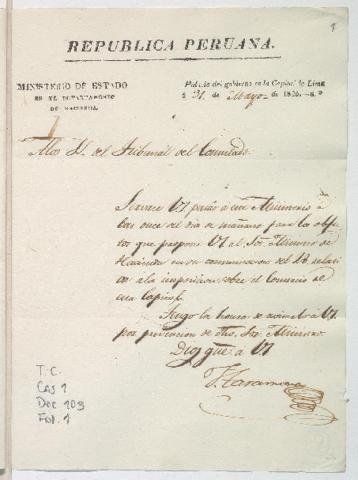 1
REPUBLICA PERUANA.
MINISTERIO DE ESTADO
EN EL DEPARTAMENTO
DE HACIENDA.
Palacio del gobierno en la Capital de Lima
á 31. de Mayo de 1826.
A los S. S. del Tribunal del Consulado.
Sirvase VS pasar á este Ministerio á
las once del dia de mañana para los obje
tos que propone VS al Sor. Ministro de
Hacienda en su comunicacion del 26 relati
vas á la imposicion sobre el Comercio de
esta Capital.
Tengo la honra de avisarlo á VS
por prevencion de dho. Sor. Ministro
Dios gue. á VS
T. C.
Caj 1
Doc 103
Fol. 1